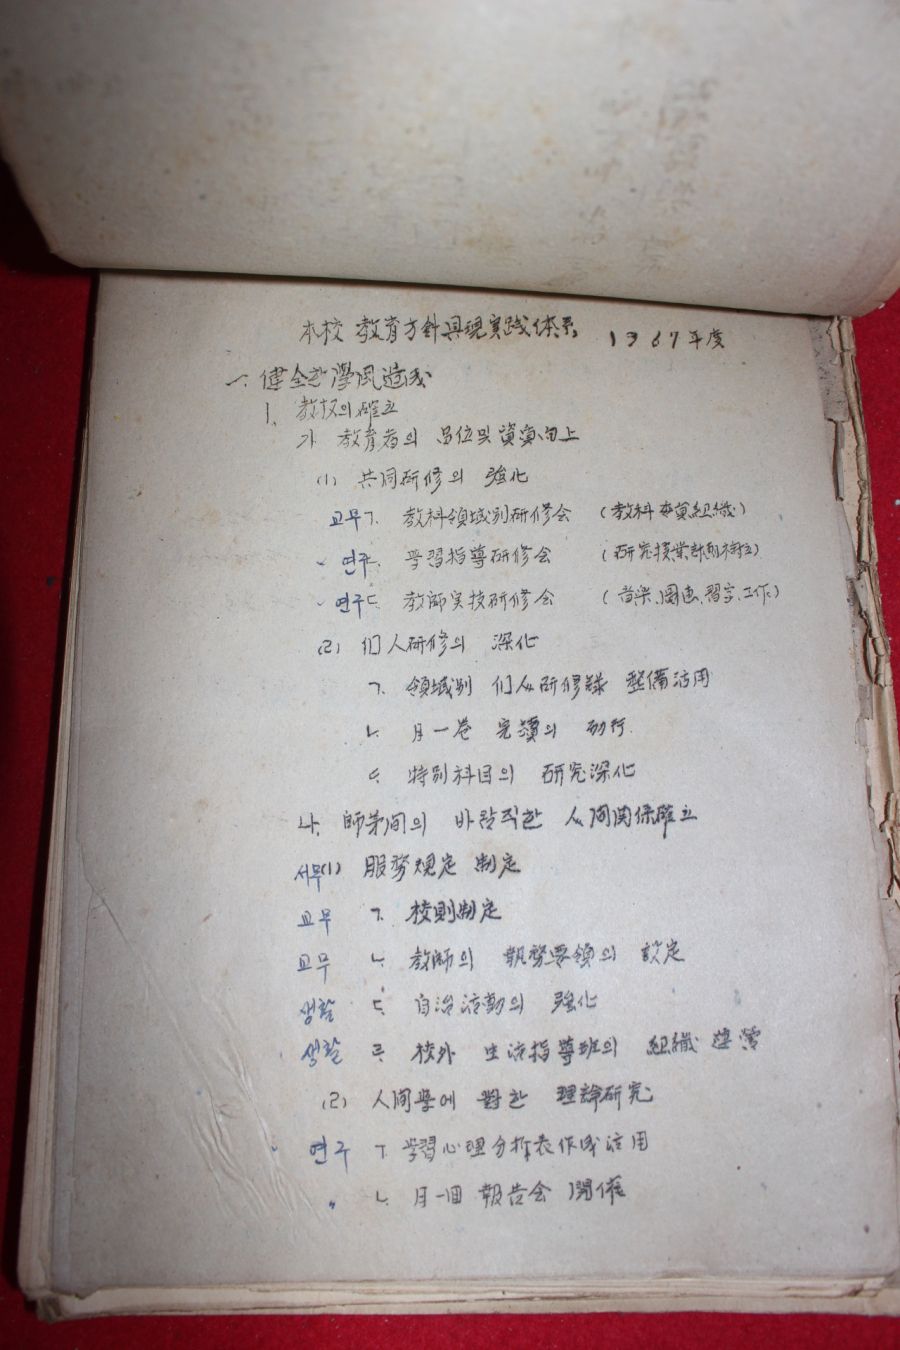 本校 教育方針具現実践体系 1967年度
一. 健全한 學風造成
1. 教权의 確立
가 教育者의 品位및 資質向上
(1) 共同研修의 強化
교무 ㄱ. 教科領域別研修会 (教科専貟組織)
연구 ㄴ. 学習指導研修会 (研究授業計劃樹立)
연구 ㄷ 教師実技研修会 (音楽、圖画、習字、工作)
(2) 们人研修의 深化
ㄱ. 領域別 们人研修録 整備活用
ㄴ. 月一巻 完讀의 励行
ㄷ 特別科目의 研究深化
나. 師弟间의 바람직한 人间関係確立
서무 (1) 服務規定 制定
교무 ㄱ. 校則制定
교무 ㄴ. 教師의 執務要領의 設定
생활 ㄷ. 自治活動의 強化
생활 ㄹ. 校外 生活指導班의 組織 運営
(2) 人间学에 對한 理論研究
연구 ㄱ. 学習心理分析表作成活用
〃 ㄴ. 月一回 報告会 開催